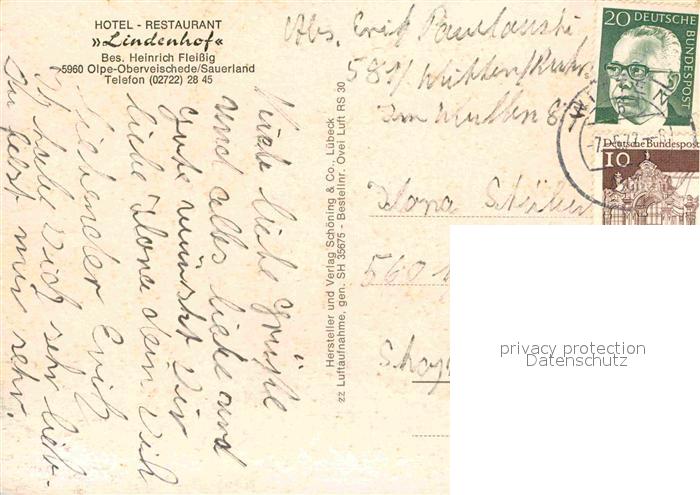 HOTEL - RESTAURANT
»Lindenhof«
Bes. Heinrich Fleißig
5960 Olpe-Oberveischede/Sauerland
Telefon (02722) 28 45
Viele liebe Grüße
und alles liebe und
gute wünscht Dir
liebe Ilona dein Dich
liebender Erich
Ich habe Dich sehr lieb.
Du fehlst mir sehr.
Hersteller und Verlag Schöning & Co., Lübeck
zz Luftaufnahme, gen. SH 35675 - Bestellnr. Ovei Luft RS 30
Abs. Erich
581 Witten/Ruhr
Im Wullen 87
Ilona
560
20 DEUTSCHE BUNDESPOST
Deutsche Bundespost
10
privacy protection
Datenschutz